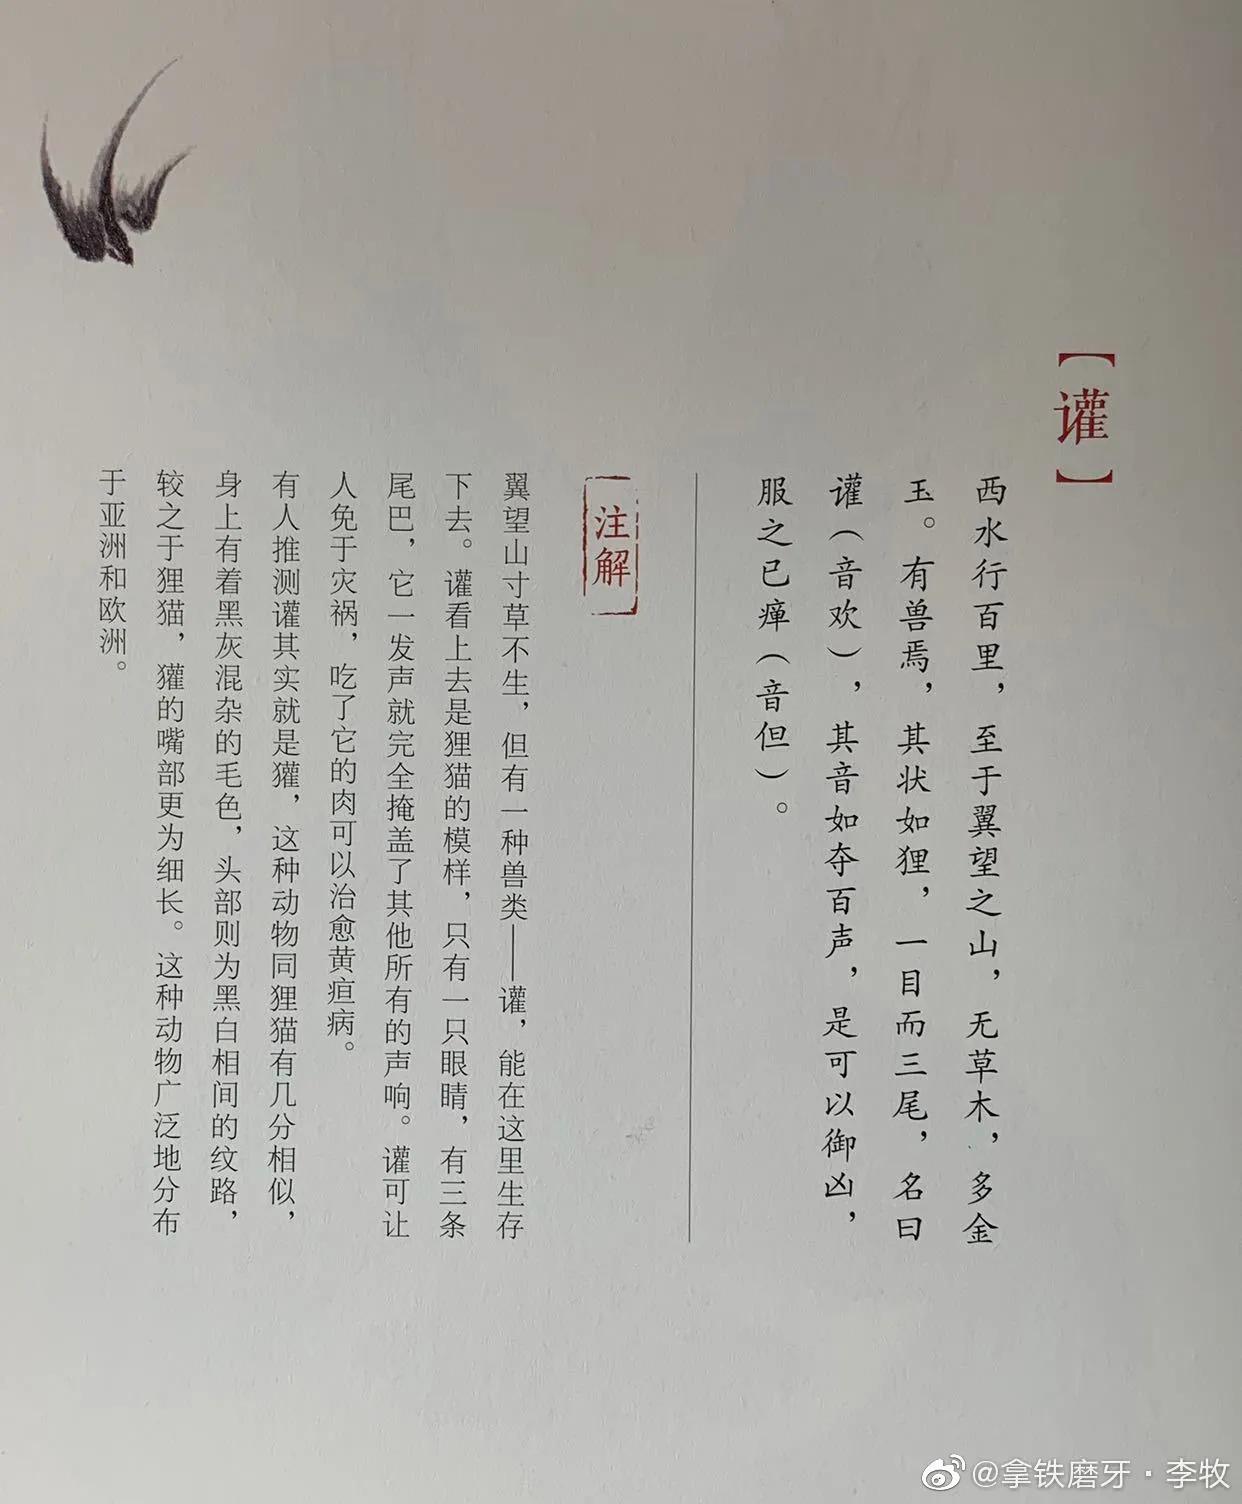 【讙】
西水行百里，至于翼望之山，无草木，多金
玉。有兽焉，其状如狸，一目而三尾，名曰
讙（音欢），其音如夺百声，是可以御凶，
服之已瘅（音但）。
注解
翼望山寸草不生，但有一种兽类——讙，能在这里生存
下去。讙看上去是狸猫的模样，只有一只眼睛，有三条
尾巴，它一发声就完全掩盖了其他所有的声响。讙可让
人免于灾祸，吃了它的肉可以治愈黄疸病。
有人推测讙其实就是獾，这种动物同狸猫有几分相似，
身上有着黑灰混杂的毛色，头部则为黑白相间的纹路，
较之于狸猫，獾的嘴部更为细长。这种动物广泛地分布
于亚洲和欧洲。
@拿铁磨牙·李牧